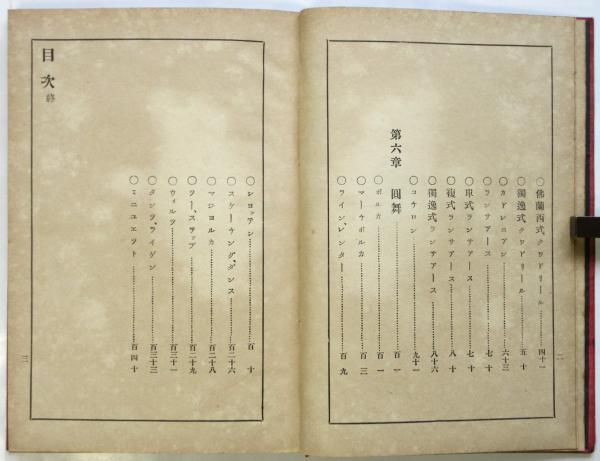 ○佛蘭西式クワドリール…………四十一
○獨逸式クワドリール…………五十
○カドレニアン…………六十三
○ランサアース…………七十
○單式ランサアース…………七十
○複式ランサアース…………八十
○獨逸式ランサアース…………八十六
○コチロン…………九十一
第六章 圓舞…………百一
○ポルカ…………百一
○マヅーケポルカ…………百三
○ラインレンダー…………百九
二
○シヨツテシ…………百十
○スケーチングダンス…………百二十六
○マジヨルカ…………百二十八
○ツー、ステツプ…………百二十九
○ウオルツ…………百三十一
○タンツ、ライゲン…………百三十三
○ミニユエツト…………百四十
目次 終
三